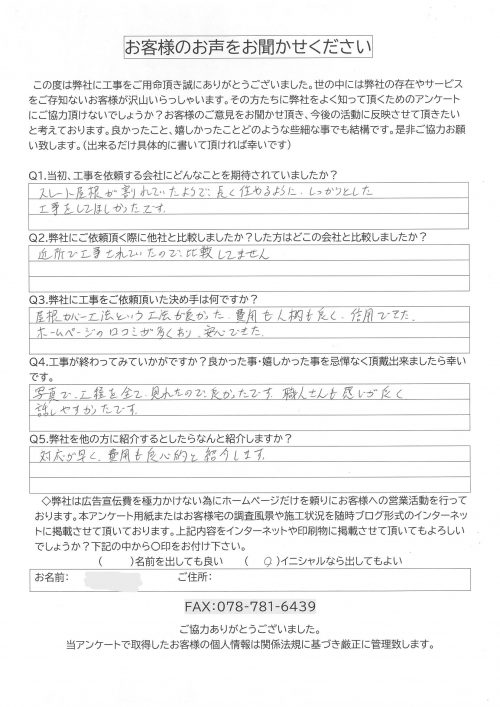 お客様のお声をお聞かせください
この度は弊社に工事をご用命頂き誠にありがとうございました。世の中には弊社の存在やサービス
をご存知ないお客様が沢山いらっしゃいます。その方たちに弊社をよく知って頂くためのアンケート
にご協力頂けないでしょうか？お客様のご意見をお聞かせ頂き、今後の活動に反映させて頂きたい
と考えております。良かったこと、嬉しかったことどのような些細な事でも結構です。是非ご協力お願
い致します。（出来るだけ具体的に書いて頂ければ幸いです）
Q1.当初、工事を依頼する会社にどんなことを期待されていましたか？
スレート屋根が割れていたようで、長く住めるように、しっかりとした
工事をしてほしかったです。
Q2.弊社にご依頼頂く際に他社と比較しましたか？した方はどこの会社と比較しましたか？
近所で工事されていたので、比較してません
Q3.弊社に工事をご依頼頂いた決め手は何ですか？
屋根カバー工法という工法が良かった、費用も人柄も良く、信用できた。
ホームページの口コミが多くあり、安心できた。
Q4.工事が終わってみていかがですか？良かった事・嬉しかった事を忌憚なく頂戴出来ましたら幸い
です。
写真で、工程を全て、見れたので、良かったです。職人さんも感じが良く
話しやすかったです。
Q5.弊社を他の方に紹介するとしたらなんと紹介しますか？
対応が早く、費用も良心的と紹介します。
◇弊社は広告宣伝費を極力かけない為にホームページだけを頼りにお客様への営業活動を行って
おります。本アンケート用紙またはお客様宅の調査風景や施工状況を随時ブログ形式のインターネッ
トに掲載させて頂いております。上記内容をインターネットや印刷物に掲載させて頂いてもよろしい
でしょうか？下記の中から〇印をお付け下さい。
（　　）名前を出しても良い　（　○）イニシャルなら出してもよい
お名前：　ご住所：
FAX：078-781-6439
ご協力ありがとうございました。
当アンケートで取得したお客様の個人情報は関係法規に基づき厳正に管理致します。